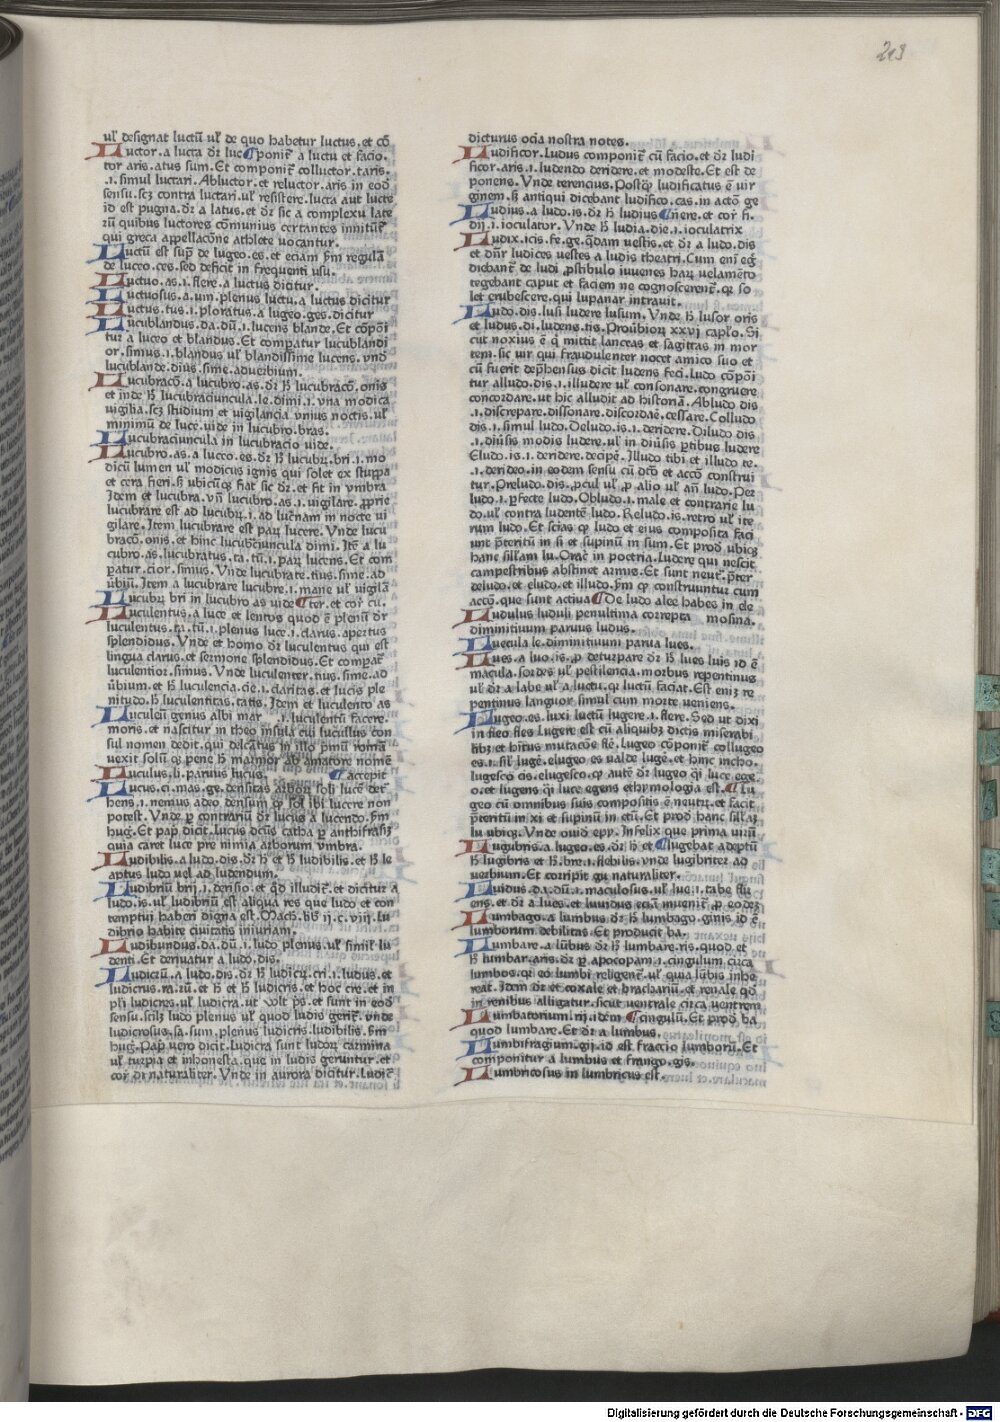 213
ul' designat luctū ul' de quo habetur luctus. et cō
Luctor. a lucta dr̄ luc ¶ ponit᷑ a luctu et facio.
tor aris. atus sum. Et componit᷑ colluctor. taris.
.i. simul luctari. Abluctor. et reluctor. aris in eod̄
sensu. scꝫ contra luctari. ul' resistere. lucta aut lucte
id est pugna. dr̄ a latus. et dr̄ sic a complexu late
rū quibus luctores cōmunius certantes innitūt᷑
qui greca appellacōne athlete vocantur.
Luctū est sup̄ de lugeo. es. et eciam s̄m regulā
de luceo. ces. sed deficit in frequenti usu.
Luctuo. as .i. flere. a luctus dicitur.
Luctuosus. a. um. plenus luctu. a luctus dicitur
Luctus. tus .i. ploratus. a lugeo. ges. dicitur
Lucublandus. da. dū .i. lucens blande. Et cōpōi
tur a luceo et blandus. Et compatur lucublandi
or. simus .i. blandus ul' blandissime lucens. vnd̄
lucublande. dius. sime. aduerbium.
Lucubracō. a lucubro. as. dr̄ h̄ lucubracō. onis
et inde h̄ lucubraciuncula. le. dimi .i. vna modica
vigilia. scꝫ studium et vigilancia vnius noctis. ul'
minimū de luce. vide in lucubro. bras.
Lucubraciuncula in lucubracio vide.
Lucubro. as. a luceo. es. dr̄ h̄ lucubꝝ. bri .i. mo
dicū lumen ul' modicus ignis qui solet ex stuppa
et cera fieri. si ubicūqꝫ fiat sic dr̄. et fit in vmbra
Idem et lucubra. vn̄ lucubro. as .i. vigilare. ꝓprie
lucubrare est ad lucubꝝ .i. ad lucernam in nocte ui
gilare. Item lucubrare est paꝝ lucere. Vnde lucu
bracō. onis. et hinc lucubraciuncula dimi. Itē a lu
cubro. as. lucubratus. ta. tū .i. paꝝ lucens. Et com
patur. cior. simus. Vnde lucubrate. tius. sime. ad
uerbiū. Item a lucubrare lucubre .i. mane ul' vigilā
Lucubꝝ bri in lucubro as vide ¶ ter. et cor̄ cu.
Luculentus. a luce et lentos quod ē plenū dr̄
luculentus. ta. tū .i. plenus luce .i. clarus. apertus
splendidus. Vnde et homo dr̄ luculentus qui est
lingua clarus. et sermone splendidus. Et compat᷑
luculentior. simus. Vnde luculenter. tius. sime. ad
uerbium. et h̄ luculencia. cie .i. claritas. et lucis ple
nitudo. h̄ luculentitas. tatis. Idem et luculento as
Luculeū genius albi mar .i. luculentū facere.
moris. et nascitur in theo insula cui lucullus con
sul nomen dedit. qui delcātus in illo pmū romā
vexit solū qꝫ pene h̄ marmor ab amatore nomē
Luculus. li. paruus lucus. ¶ accepit
Lucus. ci. mas. ge. densitas arboꝝ soli lucē det
hens .i. nemus adeo densum qꝫ sol ibi lucere non
potest. Vnde ꝑ contrariū dr̄ lucus a lucendo. s̄m
huḡ. Et pap̄ dicit. Lucus dcūs catha ꝑ anthifrasiꝫ
quia caret luce pre nimia arborum vmbra.
Ludibilis. a ludo. dis. dr̄ h̄ et h̄ ludibilis. et h̄ le
aptus ludo vel ad ludendum.
Ludibriū brij .i. derisio. et q̄d illudit᷑. et dicitur a
ludo. is. ul' ludibriū est aliqua res que ludo et con
temptui haberi digna est. Mach. lib̄ ij. c. viij. Lu
dibrio habite ciuitatis iniuriam.
Ludibundus. da. dū .i. ludo plenus. ul' simil' lu
denti. Et deriuatur a ludo. dis.
Ludicrū. a ludo. dis. dr̄ h̄ ludicꝝ. cri .i. ludus. et
ludicrus. ra. rū. et h̄ et h̄ ludicris. et hoc cre. et in
pl'i ludicres. ul' ludicra. ut volt p̄s. et sunt in eod̄
sensu. scilꝫ ludo plenus ul' quod ludis gerit᷑. vnde
ludicrosus. sa. sum. plenus ludicris. ludibilis. s̄m
huḡ. Pap̄ vero dicit. Ludicra sunt ludoꝝ carmina
ul' turpia et inhonesta. que in ludis geruntur. et
cor̄ di naturaliter. Vnde in aurora dicitur. Ludic᷑
dicturus ocia nostra notes.
Ludificor. Ludus componit᷑ cū facio. et dr̄ ludi
ficor. aris .i. ludendo deridere. et modeste. Et est de
ponens. Vnde terencius. Postqꝫ ludificatus ē uir
ginem. si antiqui dicebant ludifico. cas. in actōn ge
Ludius. a ludo. is. dr̄ h̄ ludius ¶ nere. et cor̄ fi.
dij .i. ioculator. Vnde h̄ ludia. die .i. ioculatrix
Ludix. icis. fe. ge. q̄dam vestis. et dr̄ a ludo. dis
et dn̄r ludices vestes a ludis theatri. Cum eni egr̄
diebant᷑ de ludi ꝓstibulo iuvenes harꝝ velamēto
tegebant caput et faciem ne cognoscerent᷑. qꝛ so
let erubescere. qui lupanar intrauit.
Ludo. dis. lusi ludere lusum. Vnde h̄ lusor oris
et ludus. di. ludens. tis. Prouerbioꝝ xxvj capl'o. Si
cut noxius ē q̄ mittit lanceas et sagittas in mor
tem. sic uir qui fraudulenter nocet amico suo et
cū fuerit dep̄hensus dicit ludens feci. Ludo cōpōi
tur alludo. dis .i. illudere ul' consonare. congruere
concordare. ut hic alludit ad historiā. Abludo dis
.i. discrepare. dissonare. discordare. cessare. Colludo
dis .i. simul ludo. Deludo. is .i. deridere. Diludo dis
.i. diūsis modis ludere. ul' in diūsis ꝑtibus ludere
Eludo. is .i. deridere. decipe. Illudo tibi et illudo te.
.i. derideo. in eodem sensu cū dtō et accō construi
tur. Preludo. dis. ꝓcul ul' ꝓ alio ul' an̄ ludo. Per
ludo .i. ꝑfecte ludo. Obludo .i. male et contrarie lu
do. ul' contra ludentē ludo. Reludo. is. retro ul' ite
rum ludo. Et scias qꝫ ludo et eius composita faci
unt p̄teritū in si et supinū in sum. Et prod̄ ubiqꝫ
hanc sill'am lu. Orac̄ in poetria. Ludere qui nescit
campestribus abstinet armis. Et sunt neut᷑. p̄ter
deludo. et eludo. et illudo. s̄m qꝫ construuntur cum
accō. que sunt actiua ¶ De ludo alee habes in ele
Ludulus luduli penultima correpta mosina.
diminitiuum paruus ludus.
Luecula le. diminitiuum parua lues.
Lues. a luo. is. ꝓ deturpare dr̄ h̄ lues luis id ē
macula. sordes ul' pestilencia. morbus repentinus
ul' dr̄ a labe ul' a luctu. qꝛ luctū faciat. Est eniꝫ re
pentinus languor simul cum morte veniens.
Lugeo. es. luxi luctū lugere .i. flere. Sed ut dixi
in fleo fles Lugere est cū aliquibꝫ dictis miserabi
libꝫ et hitus mutacōe flē. Lugeo cōponit᷑ collugeo
es .i. sil' luge. elugeo es valde luge. et hinc incho.
lugesco cis. elugesco. qꝫ autē dr̄ lugeo q̄i luce ege.
o. et lugens q̄i luce egens ethymologia est. ¶ Lu
geo cū omnibus suis compositis ē neutꝝ. et facit
p̄teritū in xi et supinū in ctū. Et prod̄ hanc sill'aꝫ
lu ubiqꝫ. Vnde ouid epy. Infelix que prima virū
Lugubris. a lugeo. es. dr̄ h̄ et ¶ lugebat adeptū
h̄ lugibris et h̄. bre .i. flebilis. vnde lugibriter ad
uerbium. Et corripit gu naturaliter.
Luidus. da. dū .i. maculosus. ul' lue .i. tabe flu
ens. et dr̄ a lues. et luuidus eciā inuenit᷑ ꝓ eodeꝫ
Lumbago. a lumbus dr̄ h̄ lumbago. ginis id ē
lumborum debilitas. Et producit ba.
Lumbare. a lūbus dr̄ h̄ lumbare. ris. quod et
h̄ lumbar. aris. dr̄ ꝑ apocopam .i. cingulum circa
lumbos. qꝛ eo lumbi religent᷑. ul' quia lūbis inhe
reat. Idem dr̄ et coxale et brachariū. et renale qꝛ
in renibus alligatur. sicut ventrale circa ventrem
Lumbatorium. rij. idem ¶ cingulū. Et prod̄ ba
quod lumbare. Et dr̄ a lumbus.
Lumbifragium. gij. id est fractio lumborū. Et
componitur a lumbus et frango. gis.
Lumbricosus in lumbricus est.
Digitalisierung gefördert durch die Deutsche Forschungsgemeinschaft - DFG